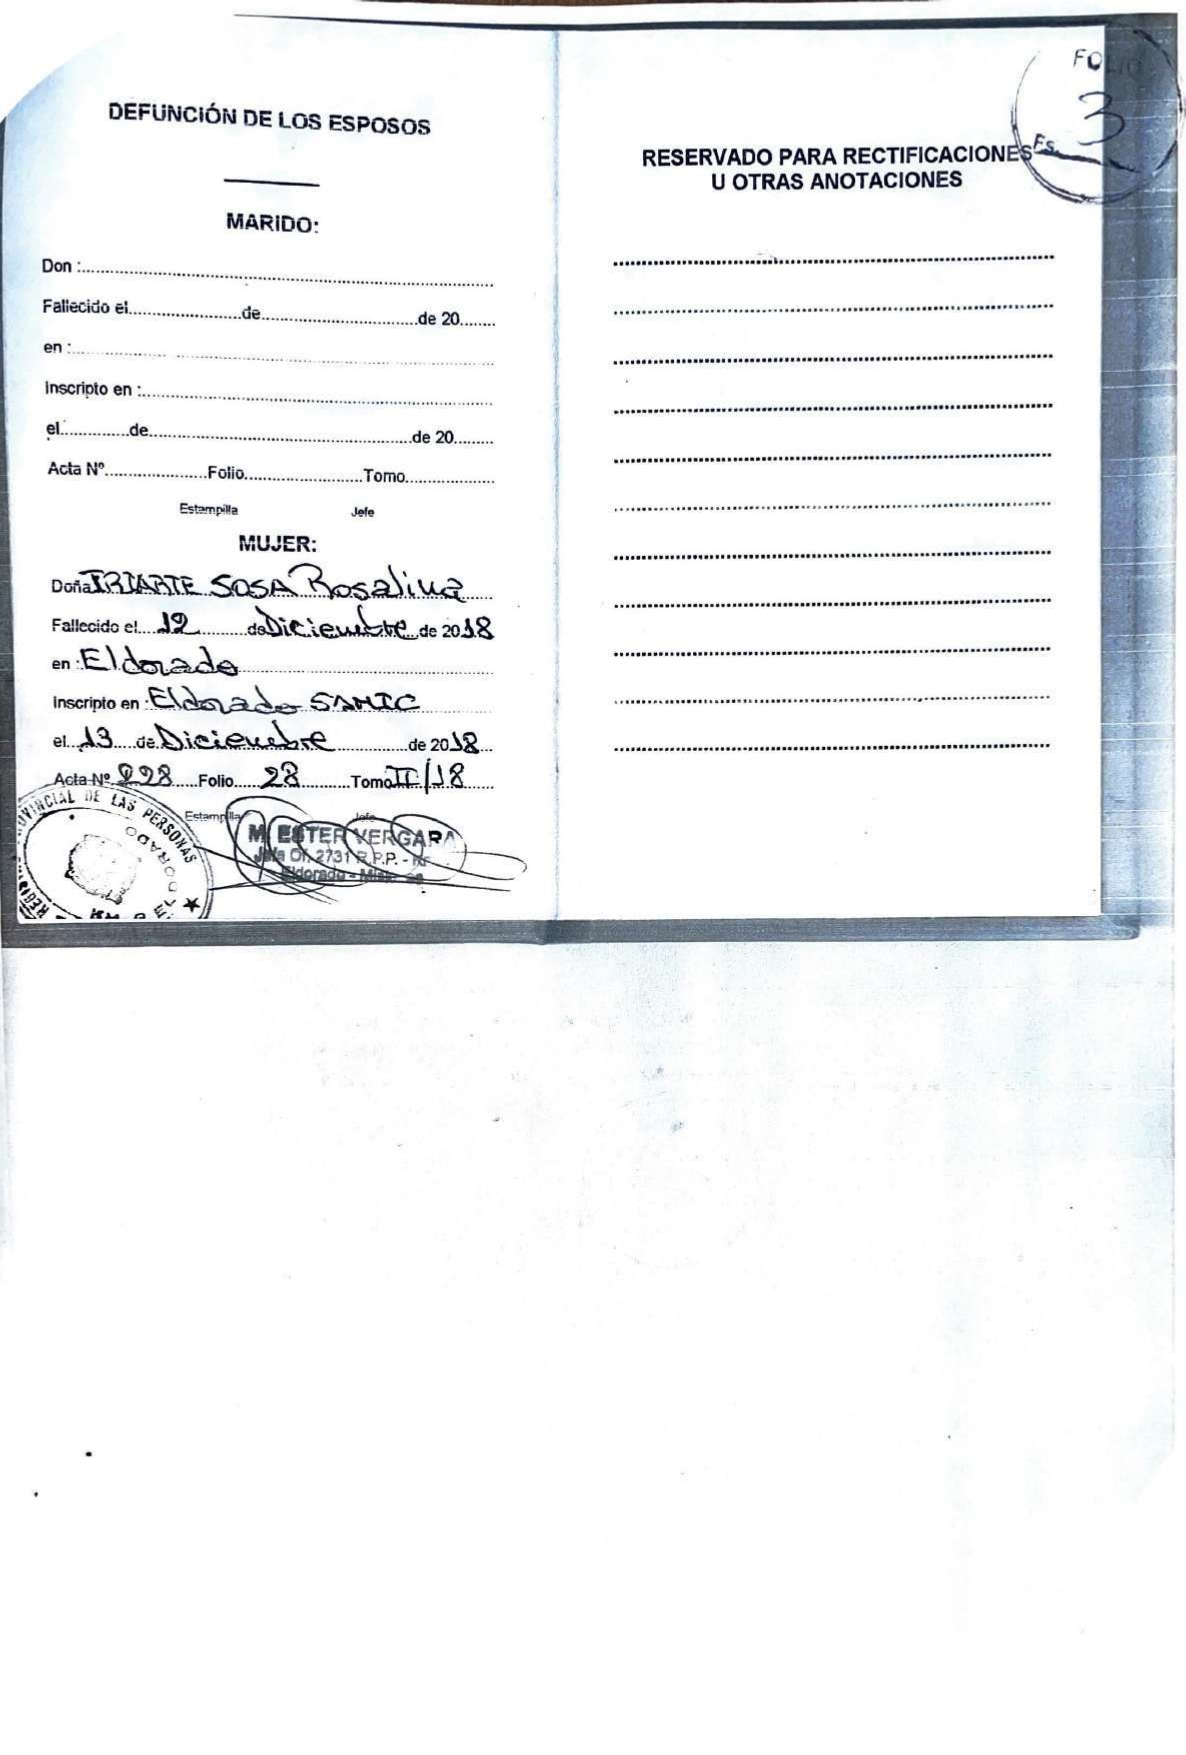 DEFUNCIÓN DE LOS ESPOSOS
MARIDO:
Don :
Fallecido el de de 20
en :
Inscripto en :
el de de 20
Acta Nº Folio Tomo
Estampilla Jefe
MUJER:
Doña IRIARTE SOSA Rosalina
Fallecido el 12 de Diciembre de 2018
en : Eldorado
Inscripto en : Eldorado SAMIC
el 13 de Diciembre de 2018
Acta Nº 228 Folio 28 Tomo II/18
Estampilla Jefe
M. ESTER VERGARA
Jefa Of. 2731 R.P.P.
Eldorado -
PROVINCIAL DE LAS PERSONAS
ELDORADO
FOLIO
3
Fs.
RESERVADO PARA RECTIFICACIONES
U OTRAS ANOTACIONES